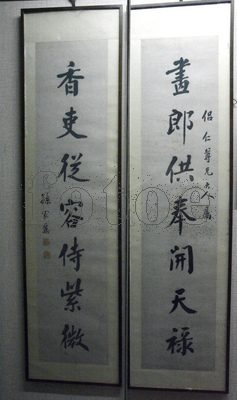 侣仁尊兄大人属
畫郎供奉開天祿
香吏從容侍紫微
孫家鼐